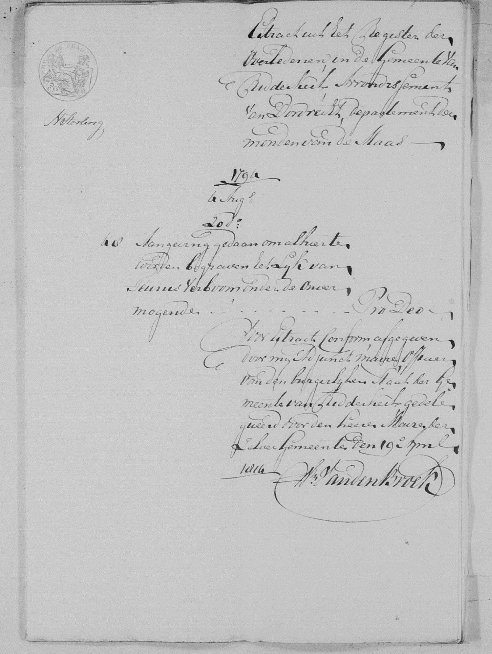 Extract uit het Register der
Overledenen, in de Gemeente van
Ridderkerk Arrondissement
van Dordrecht, Departement der
monden van de Maas
179
Aug:
20 d:
Aangeving gedaan om alhier te
worden begraven het Lyk van
Teunis Verboom onder de Onver
mogende Pro Deo
Voor Extract Conform afgegeven
door my Adjunct maire
van den burgerlyken Staat der Ge
meente van Ridderkerk gedele
gueerd door den heere Maire der
Gemeente den 19e April
Van den Broek